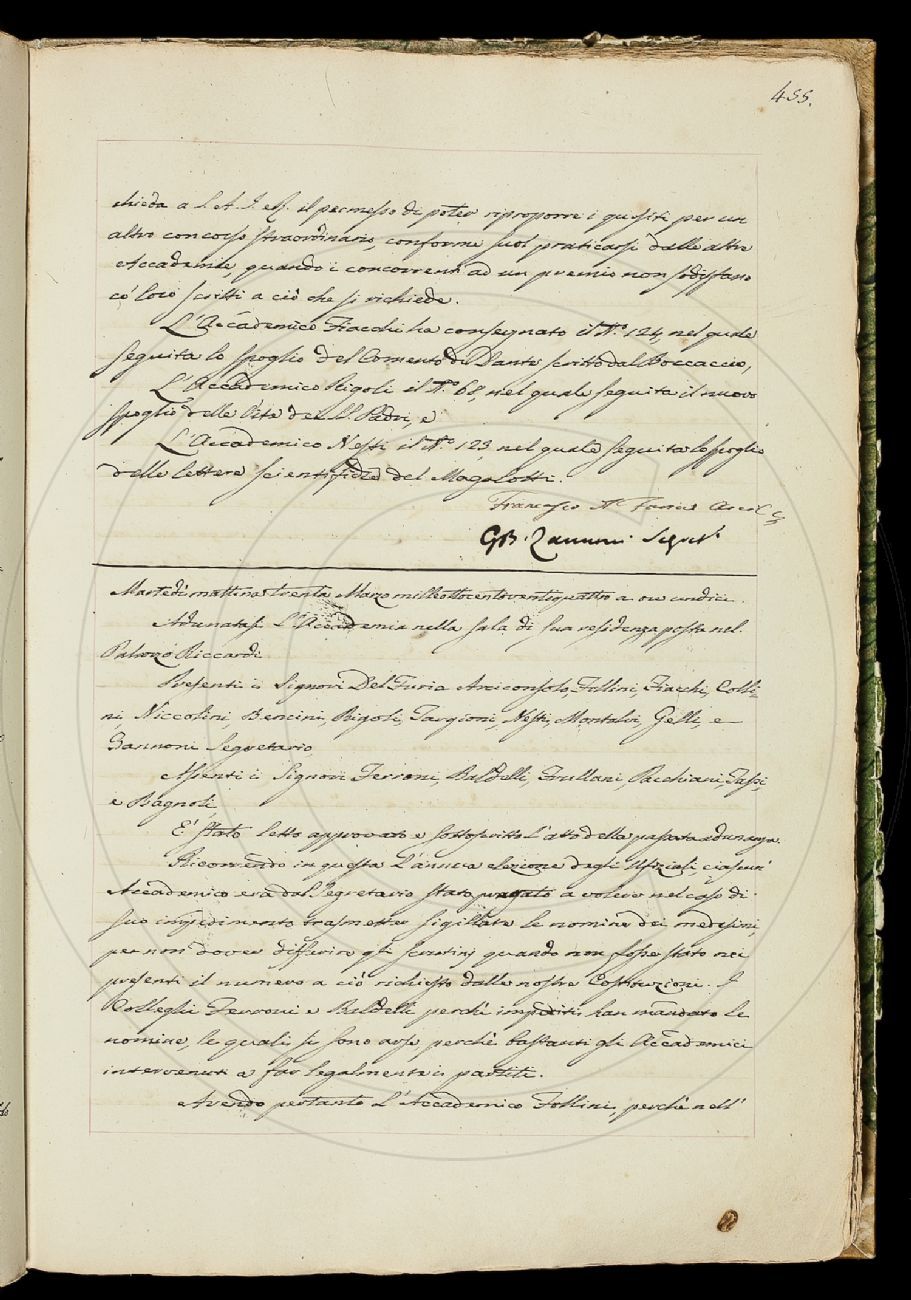 455.
chieda a S. A. I. e R. il permesso di poter riproporre i quesiti per un
altro concorso straordinario, conforme suol praticarsi dalle altre
Accademie, quando i concorrenti ad un premio non sodisfano
co' loro scritti a ciò che si richiede.
L'Accademico Fiacchi ha consegnato il N.º 124, nel quale
seguita lo spoglio del Comento di Dante scritto dal Boccaccio,
L'Accademico Rigoli il N.º 68, nel quale seguita il nuovo
spoglio delle Vite dei SS. Padri, e
L'Accademico Nesti il N.º 123, nel quale seguita lo spoglio
delle lettere scientifiche del Magalotti.
Francesco Del Furia
GB. Zannoni Segret.
Martedì mattina trenta Marzo milleottocentoventiquattro a ore undici.
Adunatasi L'Accademia nella sala di sua residenza posta nel
Palazzo Riccardi
Presenti i Signori Del Furia Arciconsolo, Follini, Fiacchi, Colli-
ni, Niccolini, Bencini, Rigoli, Targioni, Nesti, Montalvi, Gelli, e
Zannoni Segretario
Assenti i Signori Ferroni, Baldelli, Frullani, Pacchiani, Tassi,
e Bagnoli,
E' stato letto approvato e sottoscritto l'atto della passata adunanza.
Ricorrendo in questa L'annua elezione degli Ufiziali, ciascun'
Accademico era dal Segretario stato pregato a volere nel caso di
suo impedimento trasmetter sigillate le nomine dei medesimi
per non dover differire gli scrutinj quando non fosse stato nei
presenti il numero a ciò richiesto dalle nostre Costituzioni. I
Colleghi Ferroni e Baldelli perchè impediti han mandato le
nomine, le quali si sono arse, perchè bastanti gli Accademici
intervenuti a far legalmente i partiti.
Avendo pertanto L'Accademico Follini, perchè nell'